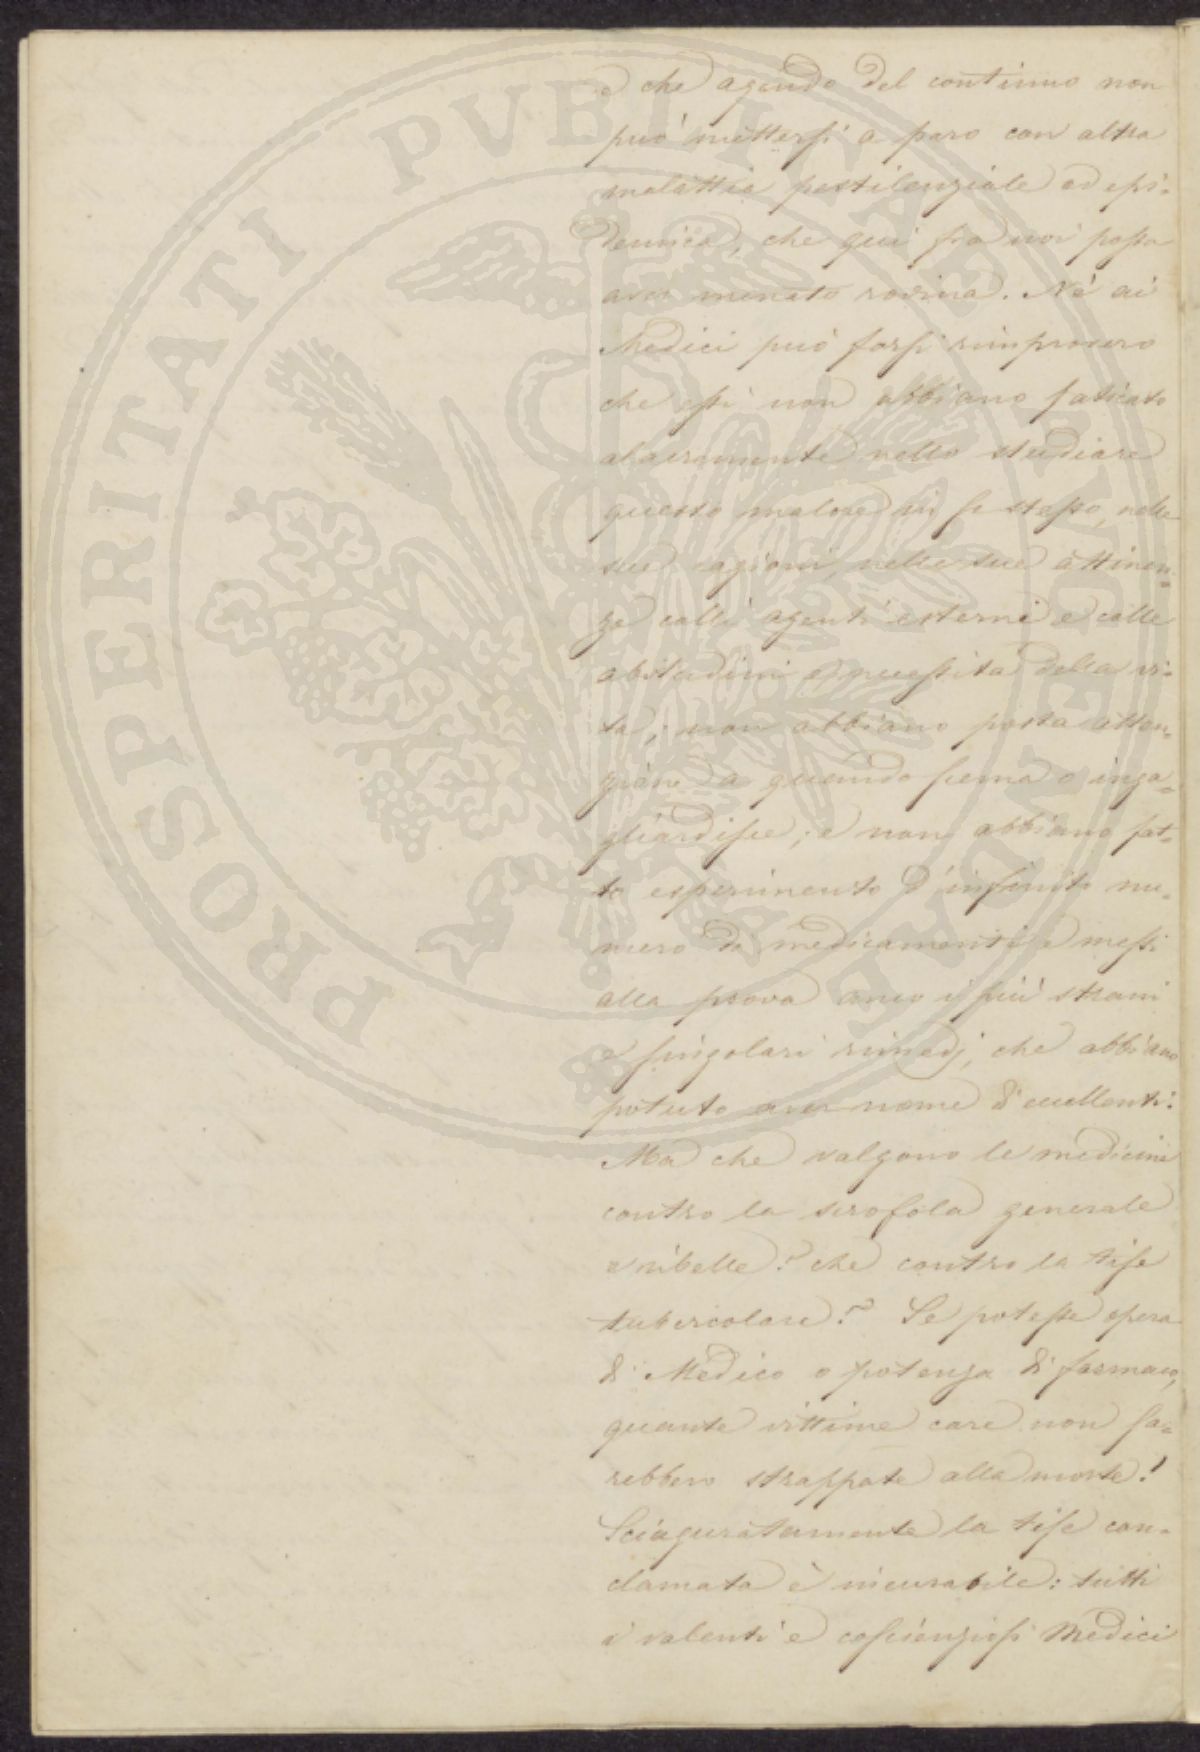 e che agendo del continuo non
può mettersi a paro con altra
malattia pestilenziale od epi-
demica, che qui fra noi possa
aver menato rovina. Nè ai
Medici può farsi rimprovero
che essi non abbiano faticato
alacremente nello studiare
questo malore in se stesso, nelle
sue cagioni, nelle sue attinen=
ze colli agenti esterni e colle
abitudini e necessità della vi=
ta; non abbiano posta atten=
zione a quando scema o inga=
gliardisce; e non abbiano fat=
to esperimento d'infinito nu=
mero di medicamenti e messi
alla prova anco i più strani
e singolari rimedj, che abbiano
potuto aver nome d'eccellenti.
Ma che valgono le medicine
contro la scrofola generale
e ribelle? che contro la tise
tubercolare? Se potesse opera
di Medico o potenza di farmaco,
quante vittime care non sa=
rebbero strappate alla morte!
Sciaguratamente la tise con=
clamata è incurabile: tutti
i valenti e coscienziosi Medici
PROSPERITATI PVBLICAE AVGENDAE